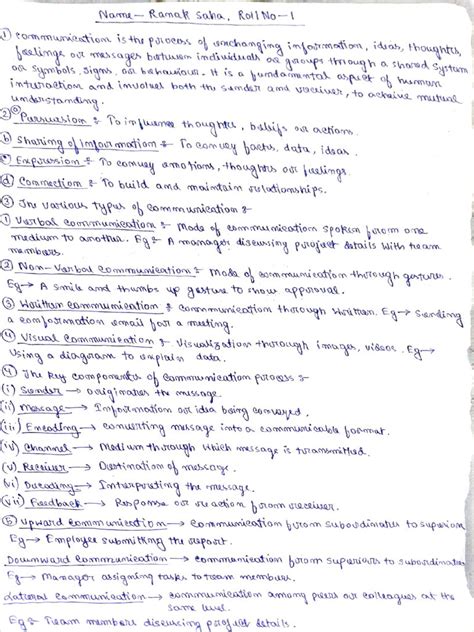 Name - Ranak Saha, Roll No - 1
① Communication is the process of exchanging information, ideas, thoughts,
feelings or messages between individuals or groups through a shared system
or symbols, signs, or behaviour. It is a fundamental aspect of human
interaction and involves both the sender and receiver, to achieve mutual
understanding.
② ⓐ Persuasion :- To influence thoughts, beliefs or actions.
ⓑ Sharing of Information :- To convey facts, data, ideas.
ⓒ Expression :- To convey emotions, thoughts or feelings.
ⓓ Connection :- To build and maintain relationships.
③ The various types of communication :-
① Verbal communication :- Mode of communication spoken from one
medium to another. Eg :- A manager discussing project details with team
members.
② Non-Verbal communication :- Mode of communication through gestures.
Eg → A smile and thumbs up gesture to show approval.
③ Written communication :- communication through written. Eg → Sending
a conformation email for a meeting.
④ Visual Communication :- Visualization through images, videos. Eg →
Using a diagram to explain data.
④ The key components of communication process :-
(i) Sender → originates the message.
(ii) Message → Information or idea being conveyed.
(iii) Encoding → converting message into a communicable format.
(iv) Channel → Medium through which message is transmitted.
(v) Receiver → Destination of message.
(vi) Decoding → Interpreting the message.
(vii) Feedback → Response or reaction from receiver.
⑤ Upward communication → Communication from subordinates to superiors
Eg → Employee submitting the report.
Downward communication → communication from superiors to subordinates
Eg → Manager assigning tasks to team members.
Lateral communication → communication among peers or colleagues at the
same level.
Eg :- Team members discussing project details.